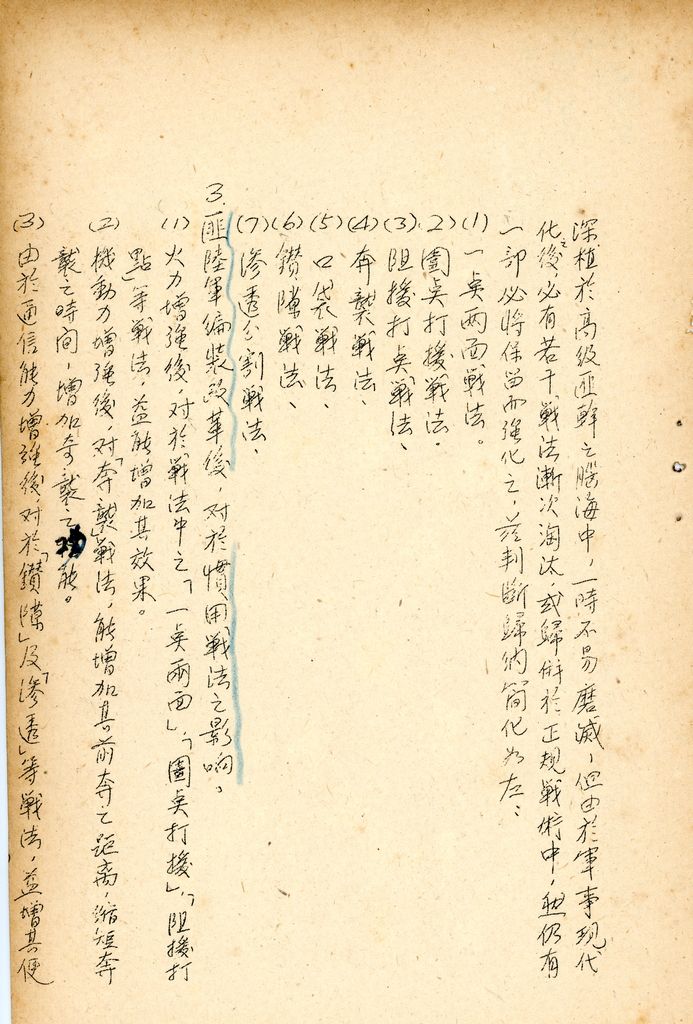 深植於高級匪幹之腦海中，一時不易磨滅，但由於軍事現代
化之後，必有若干戰法漸次淘汰，或歸併於正規戰術中，然仍有
一部必將保留而強化之，茲判斷歸納簡化為左：
(1)一点两面戰法。
(2)圍点打援戰法。
(3)阻援打点戰法、
(4)奔襲戰法、
(5)口袋戰法、
(6)鑽隙戰法、
(7)滲透分割戰法、
3.匪陸軍編裝改革後，对於慣用戰法之影响。
(1)火力增強後，对於戰法中之「一点两面」，「圍点打援」，「阻援打
點」等戰法，益能增加其效果。
(2)機動力增強後，对「奔襲」戰法，能增加其前奔之距离，缩短奔
襲之時间，增加奇襲之功能。
(3)由於通信能力增強後，对於「鑽隙」及「滲透」等戰法，益增其便